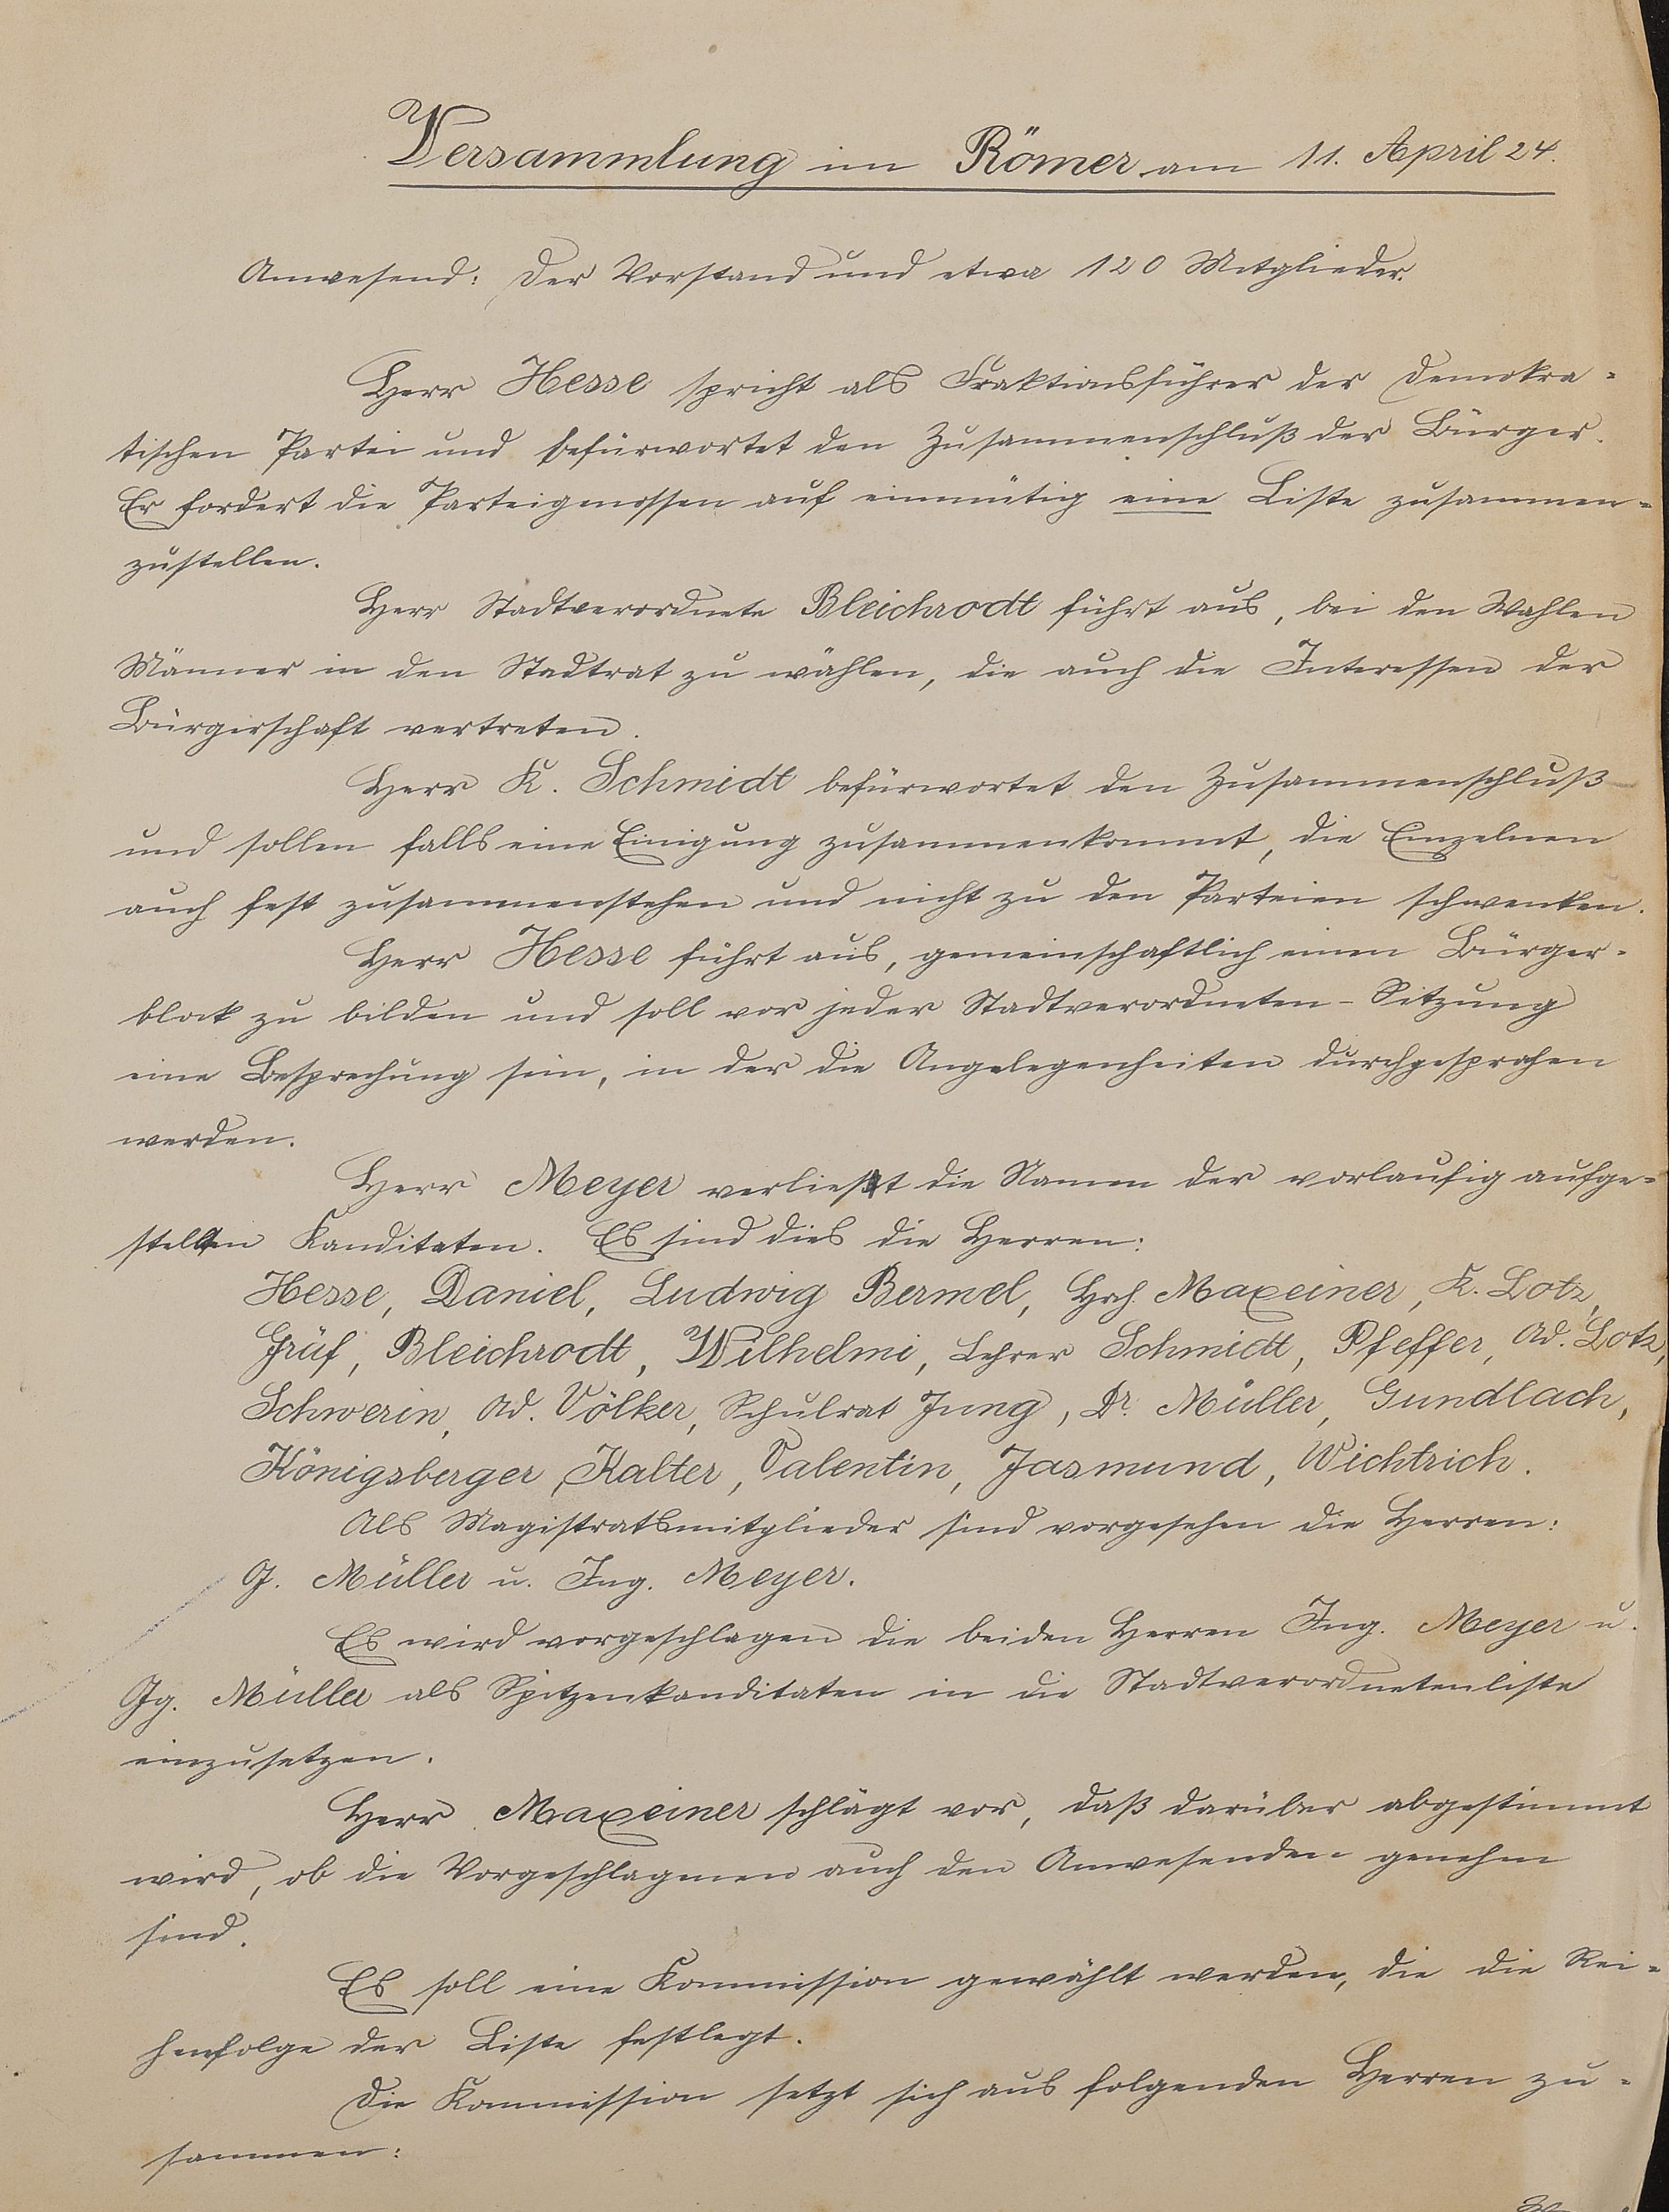 Versammlung im Römer am 11. April 24.
Anwesend: Der Vorstand und etwa 120 Mitglieder.
Herr Hesse spricht als Fraktionsführer der Demokra-
tischen Partei und befürwortet den Zusammenschluß der Bürger.
Er fordert die Parteigenossen auf einmütig eine Liste zusammen-
zustellen.
Herr Stadtverordnete Bleichrodt führt aus, bei den Wahlen
Männer in den Stadtrat zu wählen, die auch die Interessen der
Bürgerschaft vertreten.
Herr K. Schmidt befürwortet den Zusammenschluß
und sollen falls eine Einigung zusammenkommt, die Einzelnen
auch fest zusammenstehen und nicht zu den Parteien schwenken.
Herr Hesse führt aus, gemeinschaftlich einen Bürger-
block zu bilden und soll vor jeder Stadtverordneten-Sitzung
eine Besprechung sein, in der die Angelegenheiten durchgesprochen
werden.
Herr Meyer verließt die Namen der vorlaufig aufge-
stellten Kanditaten. Es sind dies die Herren:
Hesse, Daniel, Ludwig Bermel, Hch. Maxeiner, K. Lotz,
Gräf, Bleichrodt, Wilhelmi, Lehrer Schmidt, Pfeffer, Ad. Lotz,
Schwerin, Ad. Völker, Schulrat Jung, Dr. Müller, Gundlach,
Königsberger, Kalter, Valentin, Jasmund, Wichtrich.
Als Magistratsmitglieder sind vorgesehen die Herren:
G. Müller u. Ing. Meyer.
Es wird vorgeschlagen die beiden Herren Ing. Meyer u.
Gg. Müller als Spitzenkanditaten in die Stadtverordnetenliste
einzusetzen.
Herr Maxeiner schlägt vor, daß darüber abgestimmt
wird, ob die Vorgeschlagenen auch den Anwesenden genehm
sind.
Es soll eine Kommission gewählt werden, die die Rei-
henfolge der Liste festlegt.
Die Kommission setzt sich aus folgenden Herren zu-
sammen: